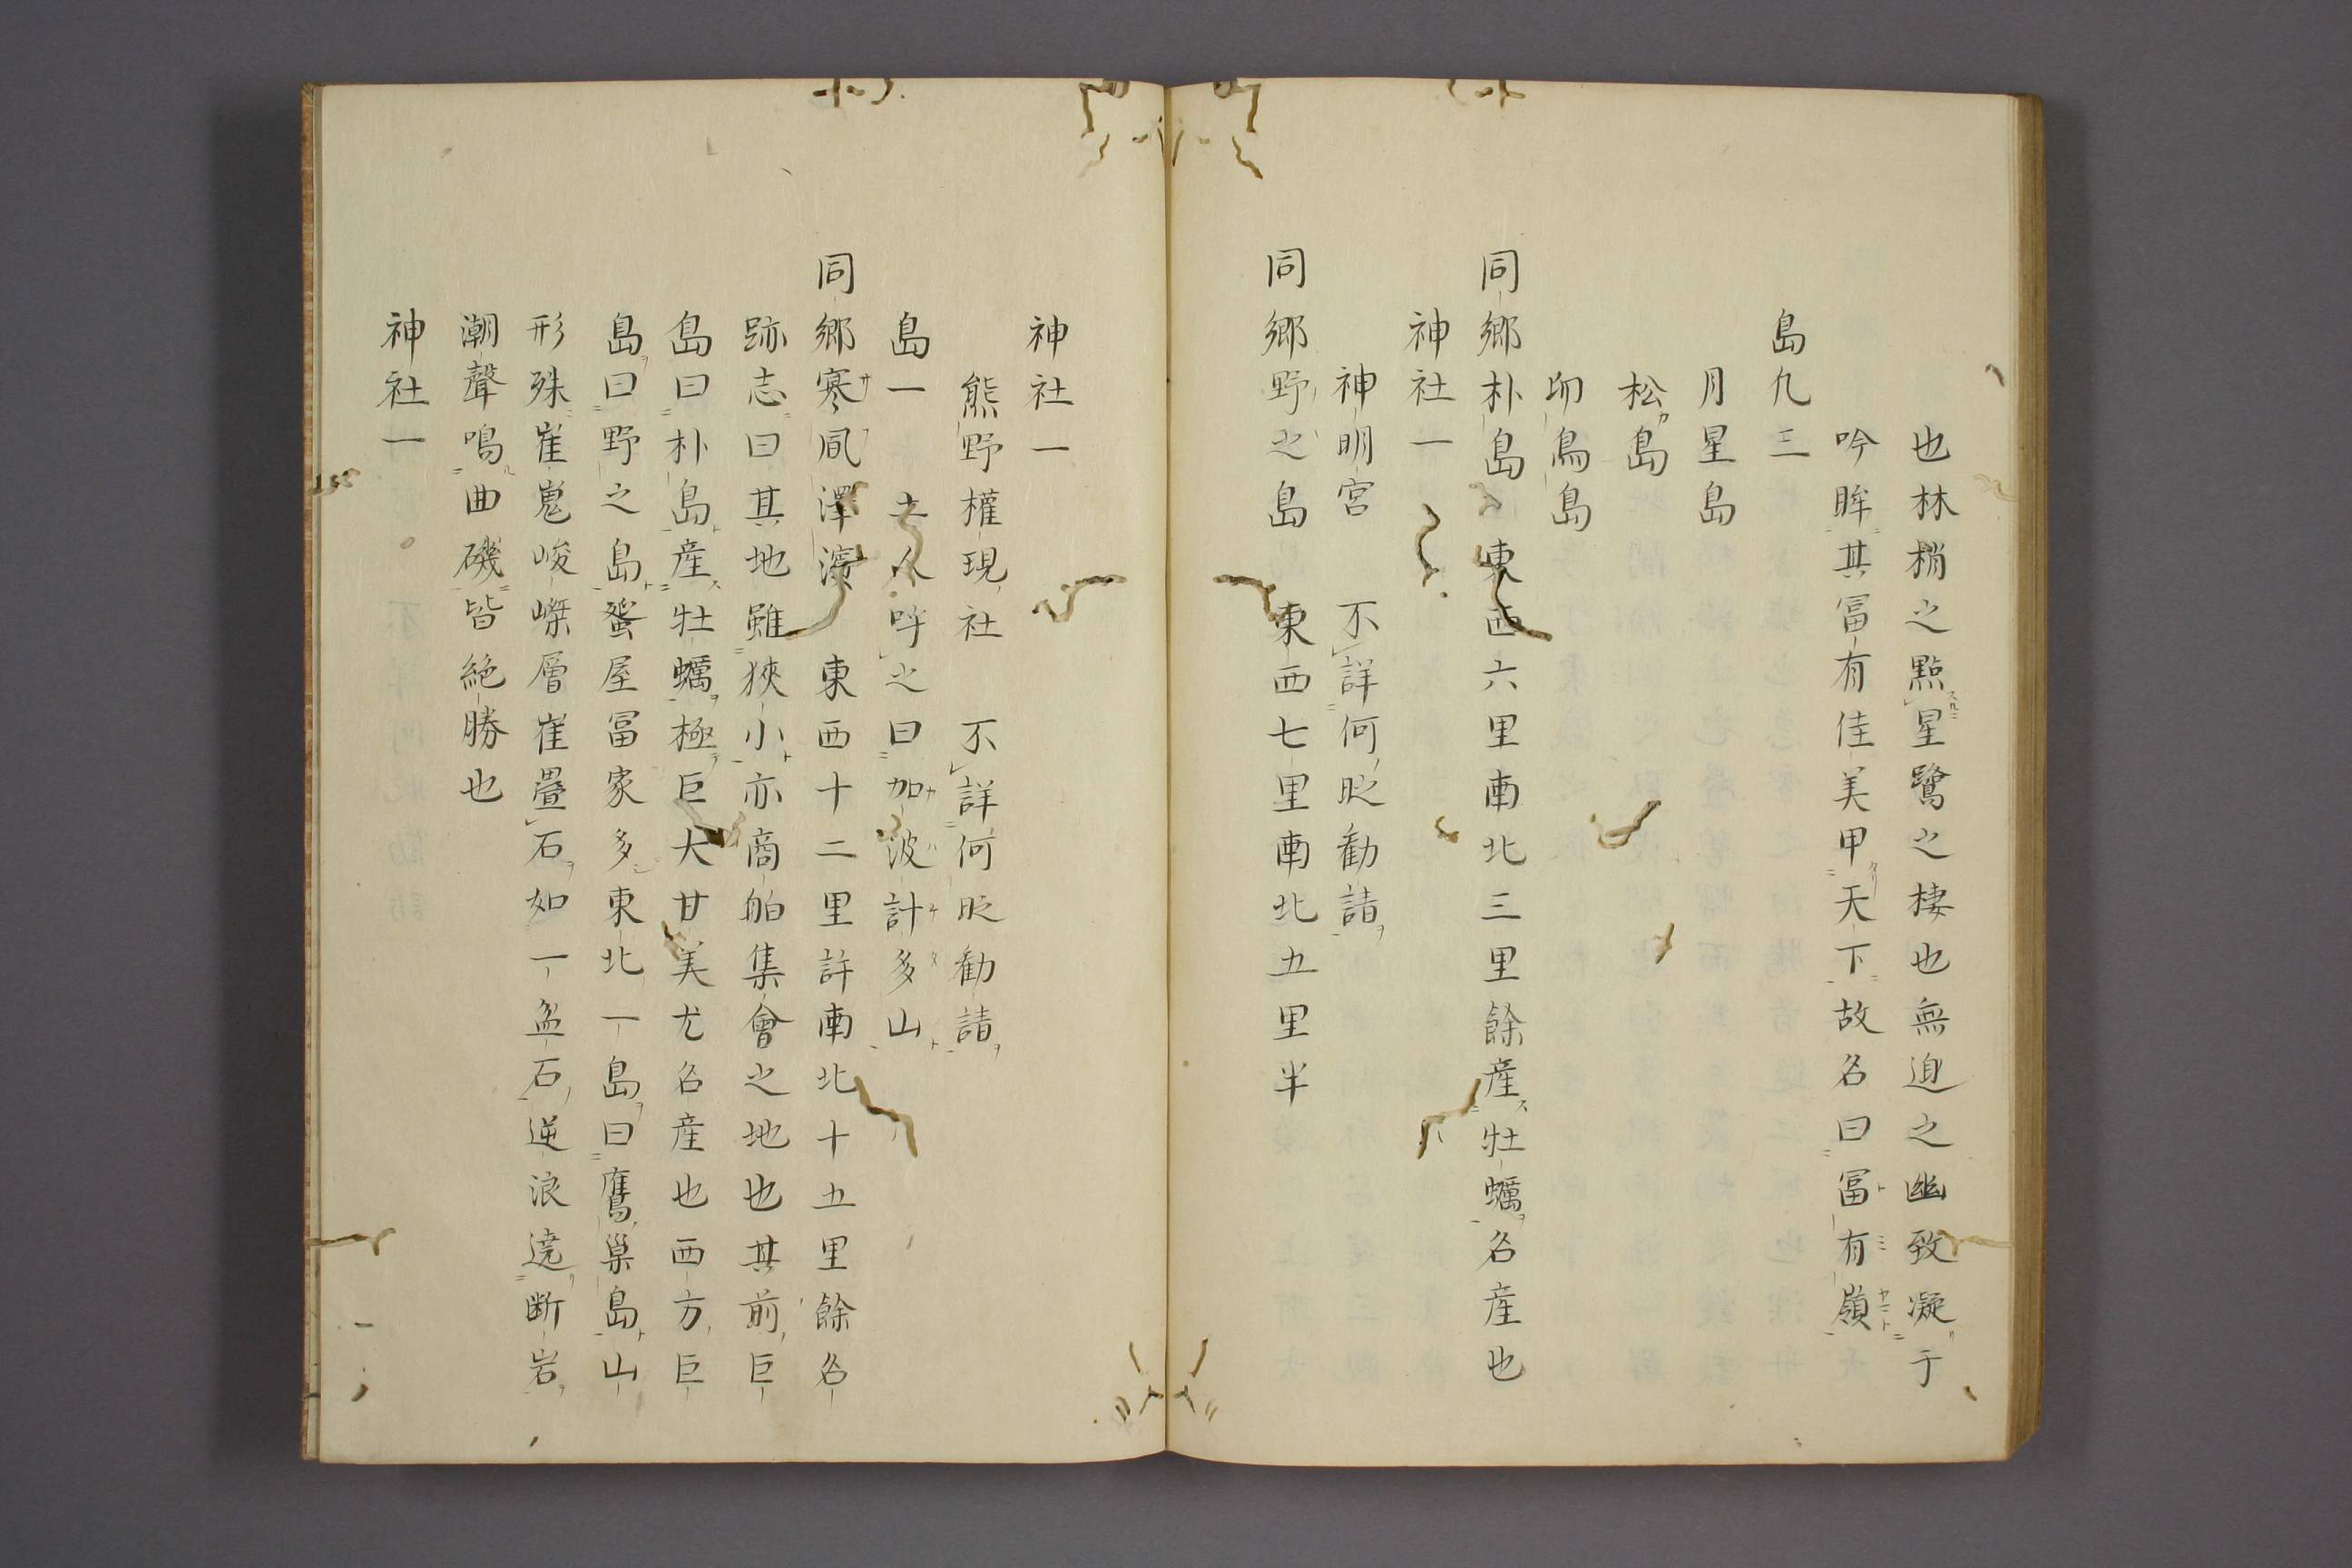 也林梢之點星鷺之棲也無邉之幽致凝于
吟眸其冨有佳美甲天下故名曰冨有嶺
島九三
月星島
松島
卯鳥島
同郷朴島 東西六里南北三里餘産牡蠣名産也
神社一
神明宮 不詳何時勸請
同郷野之島 東西七里南北五里半
神社一
熊野權現社 不詳何時勸請
島一 土人呼之曰加波計多山
同郷寒風澤濱 東西十二里許南北十五里餘名
跡志曰其地雖狹小亦商舶集會之地也其前巨
島曰朴島産牡蠣極巨大甘美尤名産也西方巨
島曰野之島蜑屋冨家多東北一島曰鷹巣島山
形殊崔嵬峻嶫層崔疊石如一盆石逆浪遶断岩
潮聲鳴曲磯皆絶勝也
神社一